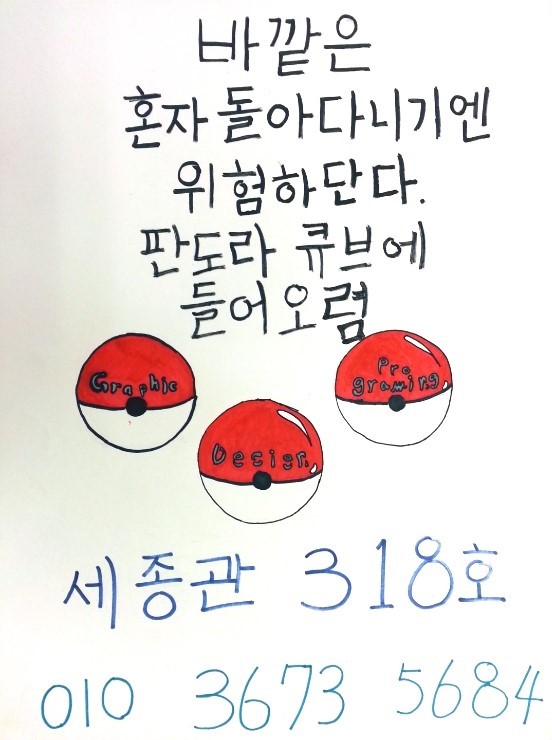 바깥은
혼자 돌아다니기엔
위험하단다.
판도라 큐브에
들어오렴
Graphic
Pro
graming
Design
세종관 318호
010 3673 5684